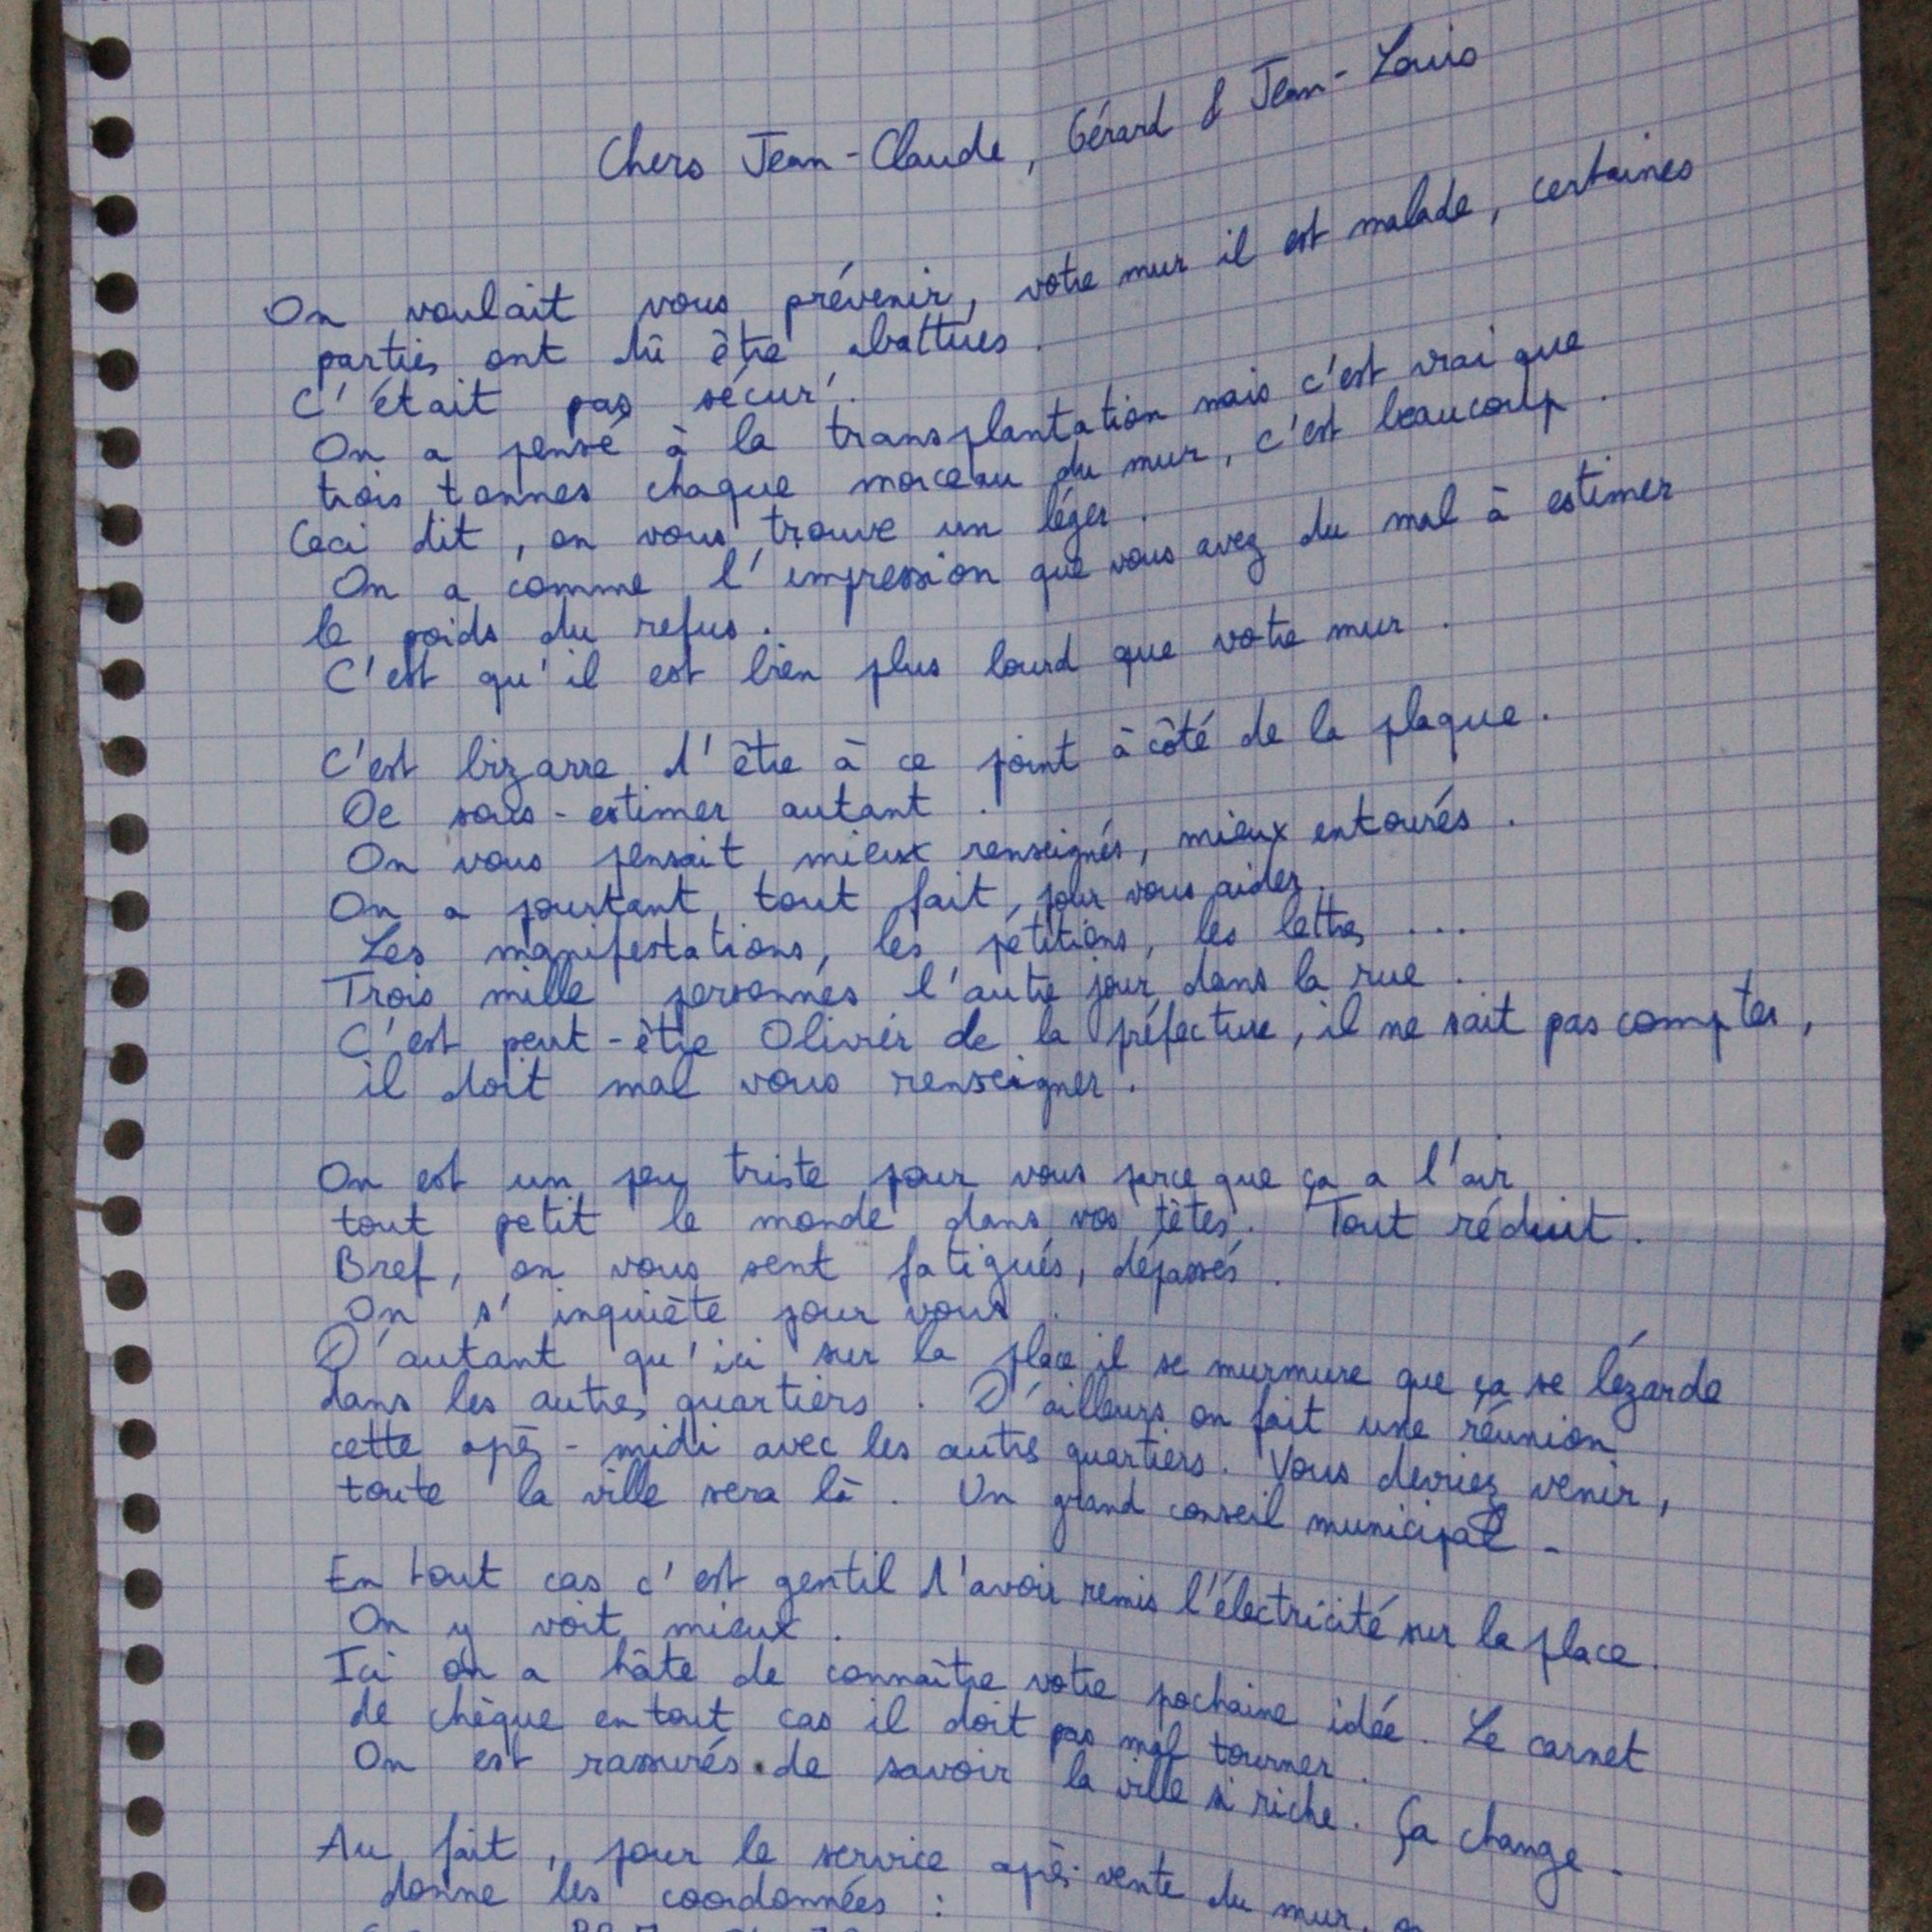 Chers Jean-Claude, Gérard & Jean-Louis
On voulait vous prévenir, votre mur il est malade, certaines
parties ont dû être abattues.
C'était pas sécur'.
On a pensé à la transplantation mais c'est vrai que
trois tonnes chaque morceau du mur, c'est beaucoup.
Ceci dit, on vous trouve un léger.
On a comme l'impression que vous avez du mal à estimer
le poids du refus.
C'est qu'il est bien plus lourd que votre mur.
C'est bizarre d'être à ce point à côté de la plaque.
De sous-estimer autant.
On vous pensait mieux renseignés, mieux entourés.
On a pourtant tout fait pour vous aider.
Les manifestations, les pétitions, les lettres ...
Trois mille personnes l'autre jour dans la rue.
C'est peut-être Olivier de la préfecture, il ne sait pas compter,
il doit mal vous renseigner.
On est un peu triste pour vous parce que ça a l'air
tout petit le monde dans vos têtes. Tout réduit.
Bref, on vous sent fatigués, dépassés.
On s'inquiète pour vous.
D'autant qu'ici sur la place il se murmure que ça se lézarde
dans les autres quartiers. D'ailleurs on fait une réunion
cette après-midi avec les autres quartiers. Vous devriez venir,
toute la ville sera là. Un grand conseil municipal.
En tout cas c'est gentil d'avoir remis l'électricité sur la place.
On y voit mieux.
Ici on a hâte de connaître votre prochaine idée. Le carnet
de chèque en tout cas il doit pas mal tourner.
On est rassurés de savoir la ville si riche. Ça change.
Au fait, pour le service après-vente du mur, on
donne les coordonnées :